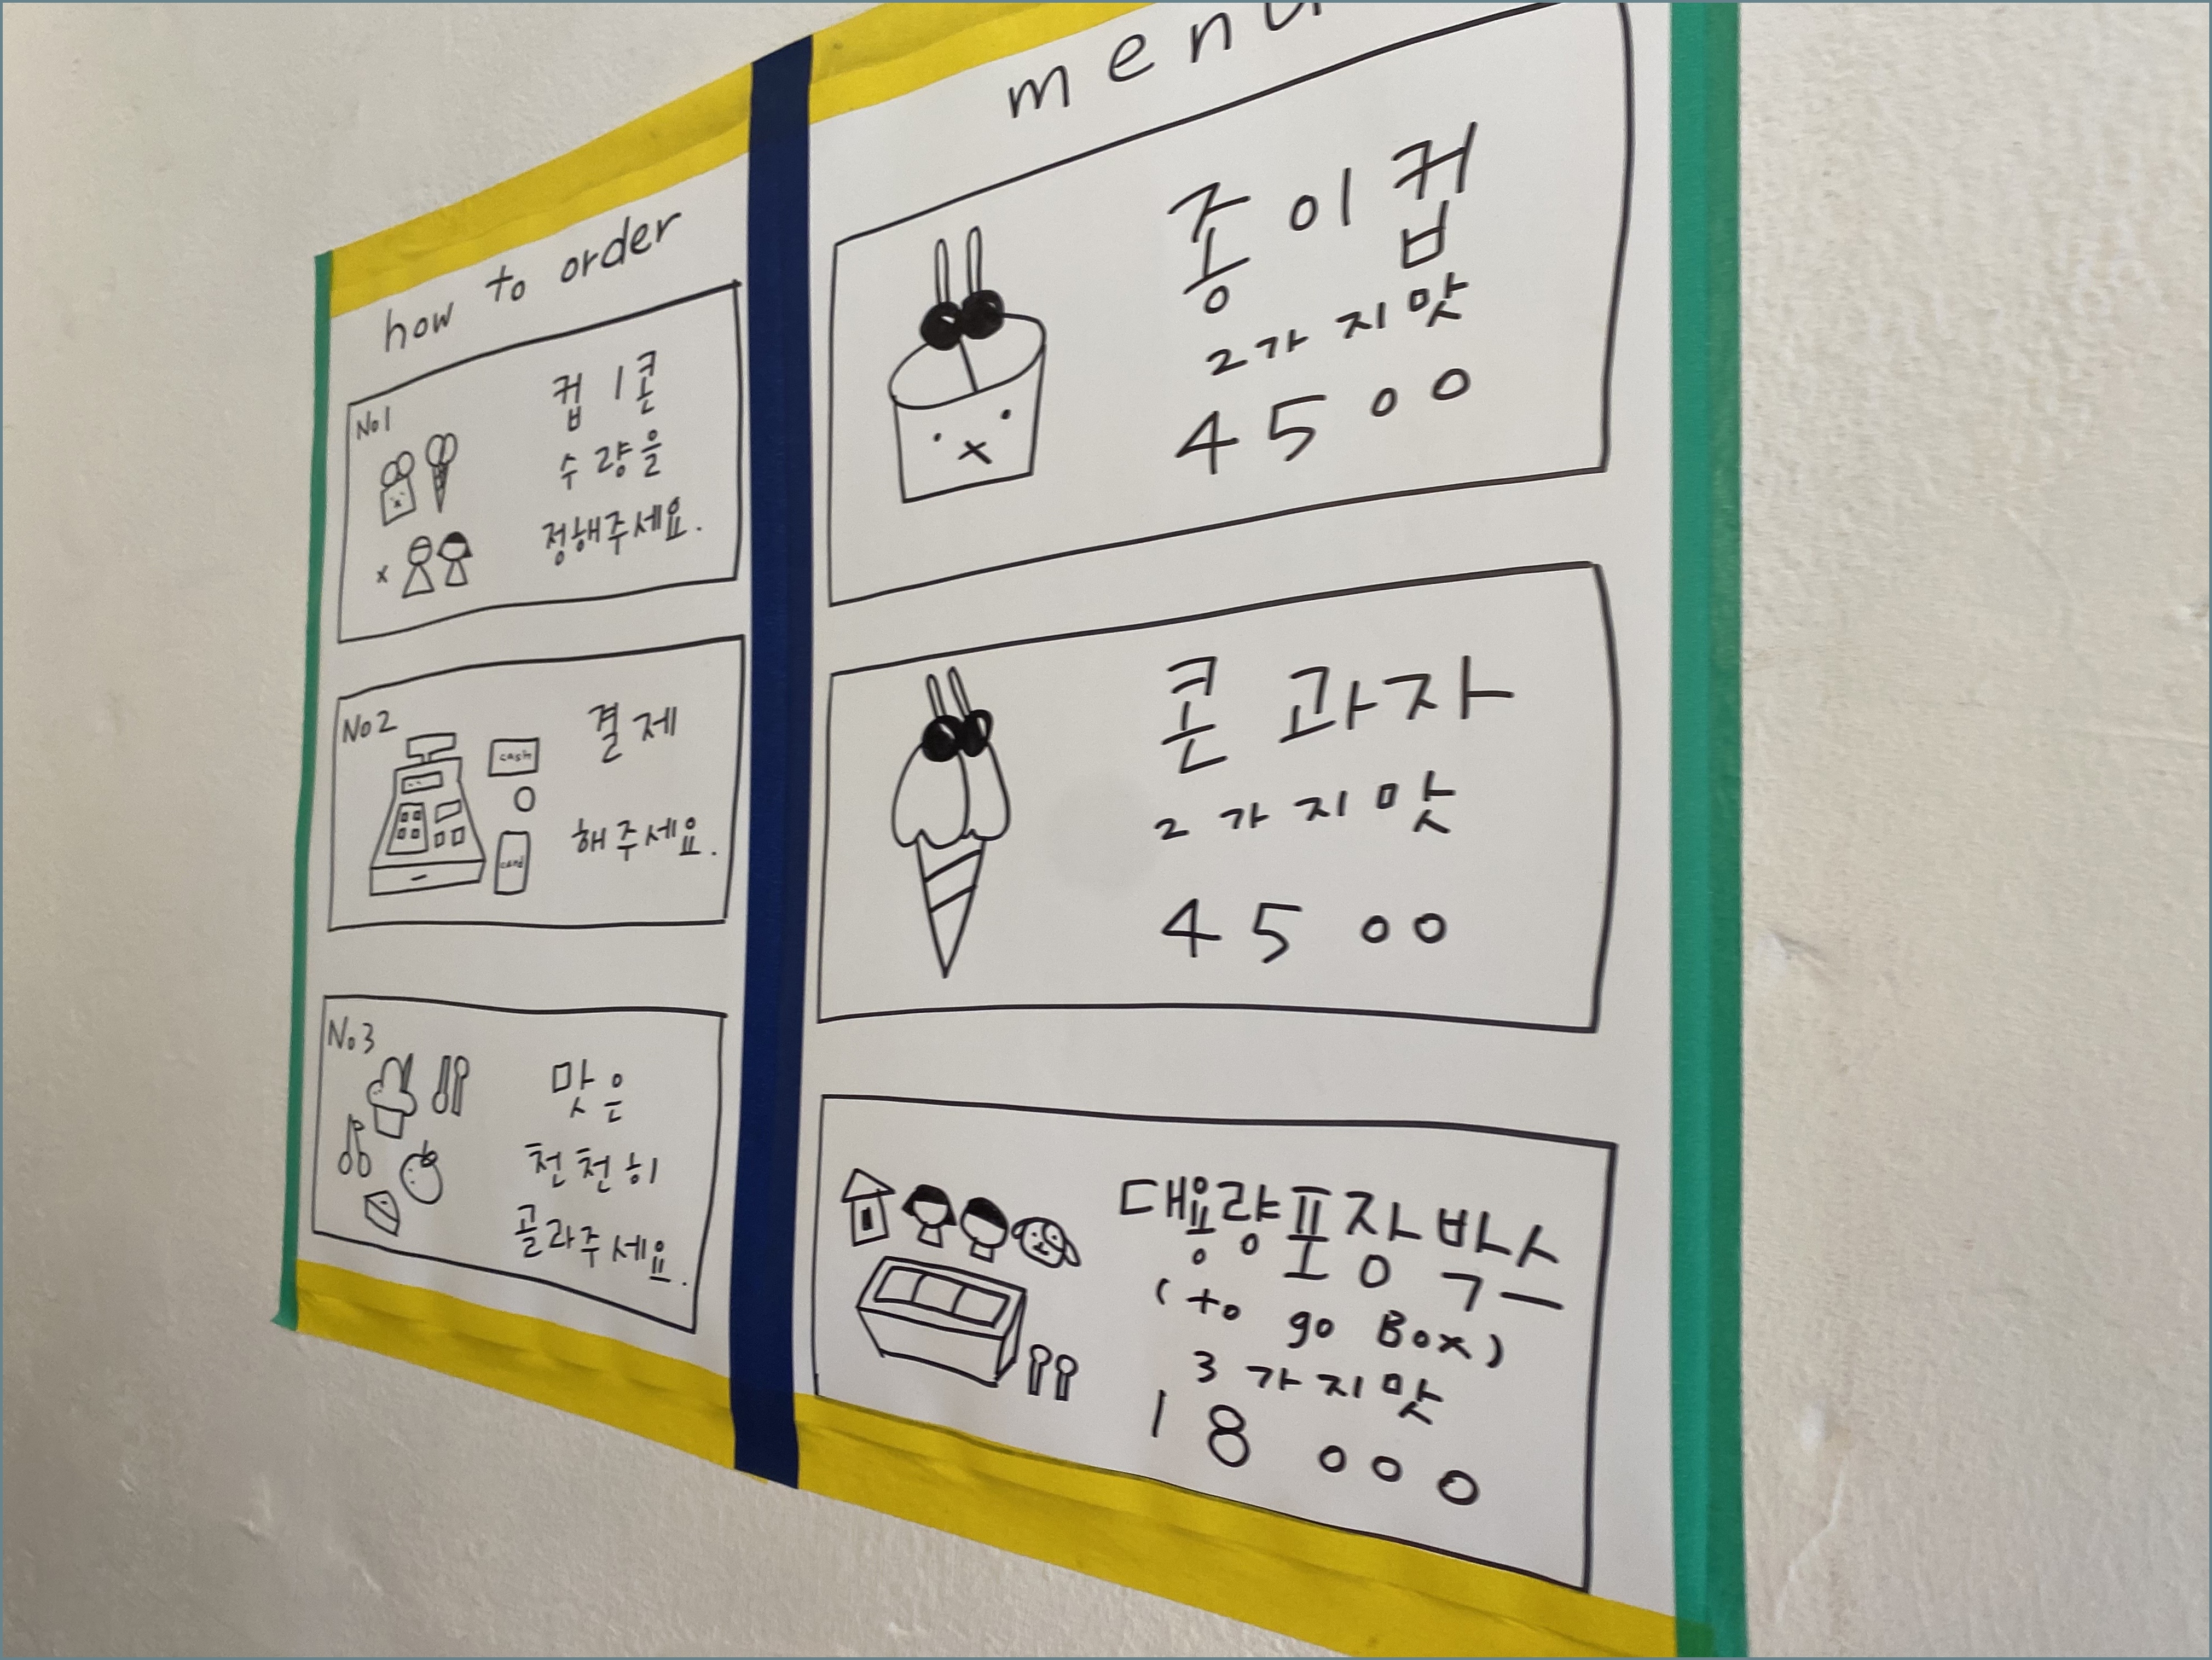 how to order
No1
컵 / 콘
수량을
정해주세요.
No2
cash
card
결제
해주세요.
No3
맛은
천천히
골라주세요.
menu
종이컵
2가지맛
4500
콘 과자
2가지맛
4500
대용량포장박스
(to go Box)
3가지맛
18000